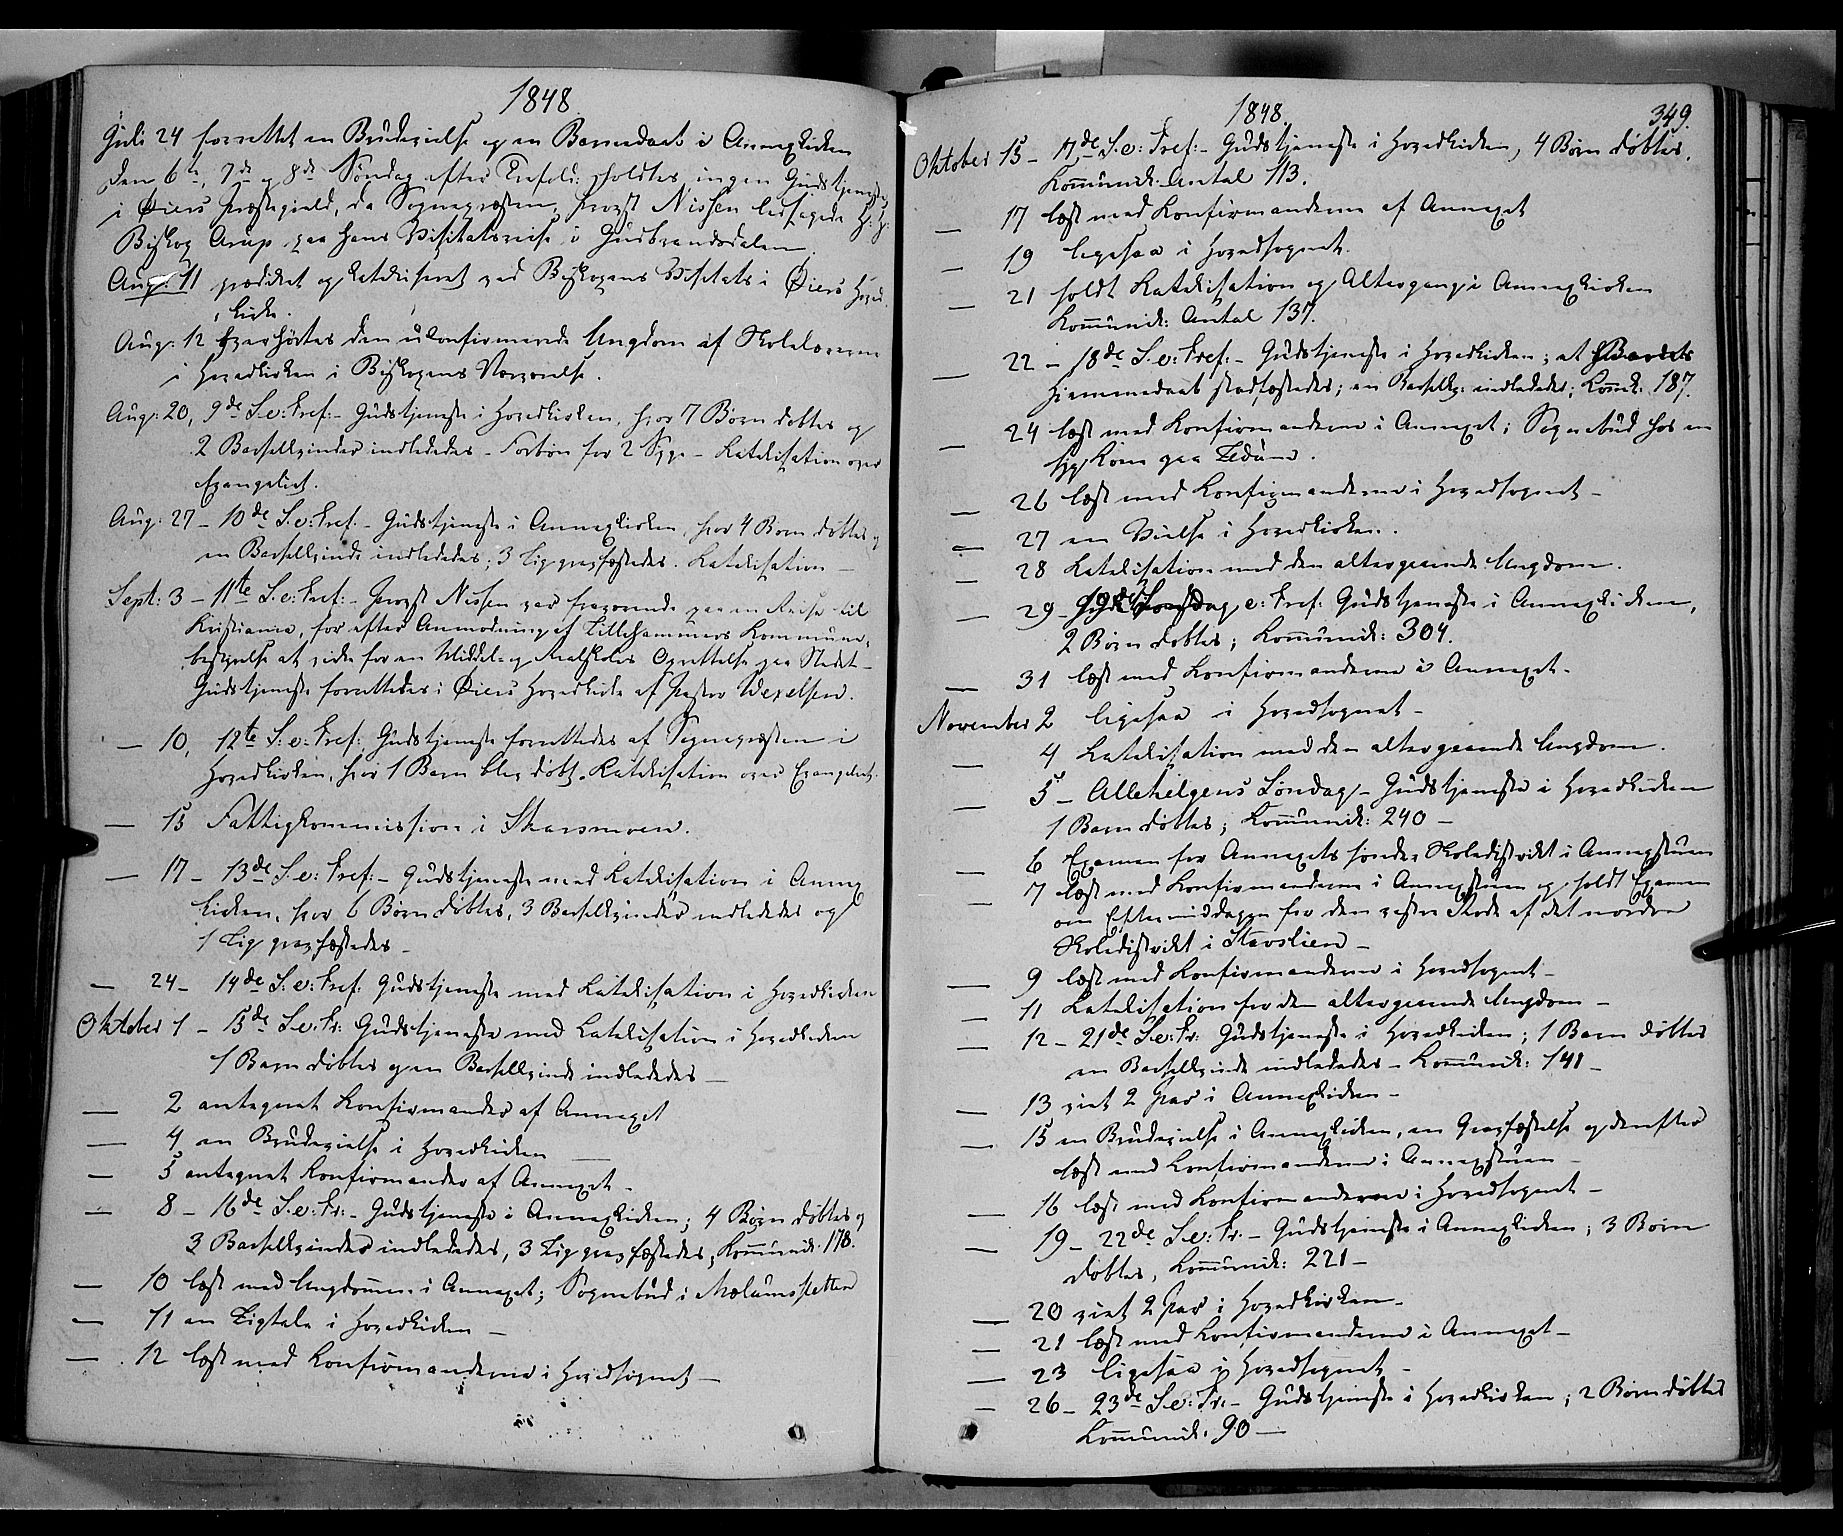 1848
Juli 24 forrettet en Brudevielse og en Barnedaab i Annexkirken
Den 6te, 7de og 8de Søndag efter Trefold: holdtes ingen Gudstjeneste
i Øiers Præstegjeld, da Sognepræsten, Provst Nissen ledsagede H: H:
Biskop Arup paa hans Visitatsreise i Gudbrandsdalen.
Aug: 11 prædiket og katekiseret ved Biskopens Visitats i Øiers Hoved
kirke.
Aug: 12 overhørtes den ukonfirmerede Ungdom af Skolelærerne
i Hovedkirken i Biskopens Nærværelse.
Aug: 20, 9de S. e: Tref: - Gudstjeneste i Hovedkirken, hvor 7 Børn døbtes og
2 Barselkvinder indlededes - Forbøn for 2 Syge - Katekisation over
Evangeliet.
Aug: 27 - 10de S. e: Tref. - Gudstjeneste i Annexkirken, hvor 4 Børn døbtes og
en Barselkvinde indlededes; 3 Lig gravfæstedes. Katekisation -
Sept: 3 - 11te S. e: Tref: - Provst Nissen var fraværende paa en Reise til
Kristiania, for efter Anmodning af Lillehammers Kommune-
bestyrelse at virke for en Middel- og Realskoles Oprettelse paa Stedet -
Gudstjeneste forrettedes i Øiers Hovedkirke af Pastor Wexelsen.
— 10, 12te S. e: Tref: Gudstjeneste forrettedes af Sognepræsten i
Hovedkirken, hvor 1 Barn blev døbt. Katekisation over Evangeliet.
— 15 Fattigkommission i Skarsmoen.
— 17 - 13de S. e: Tref: - Gudstjeneste med Katekisation i Annex
kirken, hvor 6 Børn døbtes, 3 Barselkvinder indlededes og
1 Lig gravfæstedes -
— 24 - 14de S: e: Tref: Gudstjeneste med Katekisation i Hovedkirken
Oktober 1 - 15de S. e: Tr: Gudstjeneste med Katekisation i Hovedkirken
1 Barn døbtes og en Barselkvinde indlededes —
— 2 antegnet Konfirmander af Annexet
— 4 en Brudevielse i Hovedkirken —
— 5 antegnet Konfirmander af Annexet -
— 8 - 16de S. e: Tr: - Gudstjeneste i Annexkirken; 4 Børn døbtes og
3 Barselkvinder indlededes, 3 Lig gravfæstedes, Kommunik. 178.
— 10 læst med Ungdommen i Annexet; Sognebud i
— 11 en Ligtale i Hovedkirken —
— 12 læst med Konfirmanderne i Hovedsognet —
1848. 349.
Oktober 15 - 17de S. e: Tref: - Gudstjeneste i Hovedkirken, 4 Børn døbtes.
Kommunik: Antal 113.
— 17 læst med Konfirmanderne af Annexet
— 19 ligesaa i Hovedsognet.
— 21 holdt Katekisation og Altergang i Annexkirken
Kommunik: Antal 137.
— 22 - 18de S. e: Tref: - Gudstjeneste i Hovedkirken; at Barns
Hjemmedaab stadfæstedes; en Barselkv: indlededes; Komk: 187.
— 24 læst med Konfirmanderne i Annexet; Sognebud hos en
syg Kone paa
— 26 læst med Konfirmanderne i Hovedsognet —
— 27 en Vielse i Hovedkirken.
— 28 Katekisation med den altergaaende Ungdom.
— 29 - Søndag e: Tref: Gudstjeneste i Annexkirken,
2 Børn døbtes; Kommunik: 304.
— 31 læst med Konfirmanderne i Annexet -
November 2 ligesaa i Hovedsognet —
— 4 Katekisation med den altergaaende Ungdom.
— 5 - Allehelgens Søndag - Gudstjeneste i Hovedkirken
1 Barn døbtes; Kommunik: 240 —
— 6 Examen for Annexets søndre Skoledistrikt i Annexstuen
— 7 læst med Konfirmanderne i Annexstuen og holdt Examen
om Eftermiddagen for den vestre Rode af det nordre
Skoledistrikt i Stavslien —
— 9 læst med Konfirmanderne i Hovedsognet —
— 11 Katekisation for den altergaaende Ungdom —
— 12 - 21de S. e: Tr: Gudstjeneste i Hovedkirken; 1 Barn døbtes
en Barselkvinde indlededes - Kommunik: 141 —
— 13 viet 2 Par i Annexkirken —
— 15 en Brudevielse i Annexkirken, en Gravfæstelse og derefter
læst med Konfirmanderne i Annexstuen —
— 16 læst med Konfirmanderne i Hovedsognet —
— 19 - 22de S. e: Tr: - Gudstjeneste i Annexkirken; 3 Børn
døbtes, Kommunik: 221 —
— 20 viet 2 Par i Hovedkirken -
— 21 læst med Konfirmanderne i Annexet —
— 23 ligesaa i Hovedsognet —
— 26 - 23de S. e: Tr. - Gudstjeneste i Hovedkirken; 2 Børn døbtes
Kommunik: 90 —